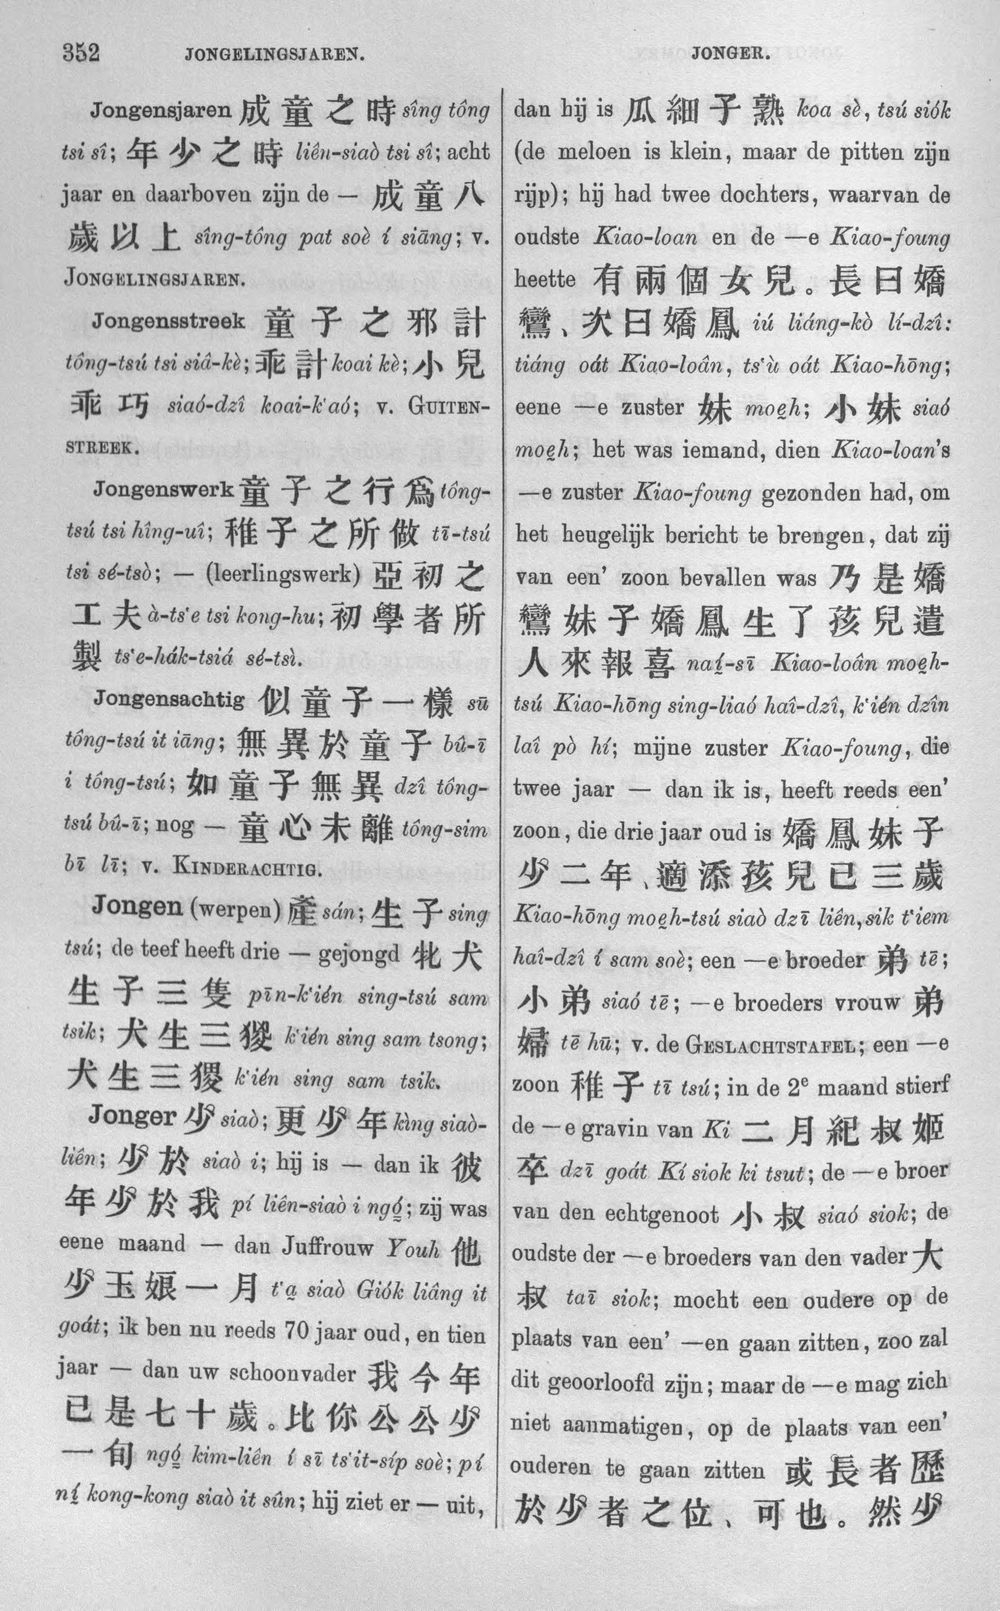 352
JONGELINGSJAREN.
JONGER.
Jongensjaren 成童之時 sîng tông
tsi sî; 年少之時 liên-siaò tsi sî; acht
jaar en daarboven zijn de — 成童八
歲以上 sîng-tông pat soè í siāng; v.
JONGELINGSJAREN.
Jongensstreek 童子之邪計
tông-tsú tsi siâ-kè; 乖計 koai kè; 小兒
乖巧 siaó-dzî koai-k'aó; v. GUITEN-
STREEK.
Jongenswerk 童子之行爲 tông-
tsú tsi hîng-uî; 稚子之所做 tī-tsú
tsi sé-tsò; — (leerlingswerk) 亞初之
工夫 à-ts'e tsi kong-hu; 初學者所
製 ts'e-hák-tsiá sé-tsì.
Jongensachtig 似童子一樣 sū
tông-tsú it iāng; 無異於童子 bû-ī
i tông-tsú; 如童子無異 dzî tông-
tsú bû-ī; nog — 童心未離 tông-sim
bī lī; v. KINDERACHTIG.
Jongen (werpen) 產 sán; 生子 sing
tsú; de teef heeft drie — gejongd 牝犬
生子三隻 pīn-k'ién sing-tsú sam
tsik; 犬生三猣 k'ién sing sam tsong;
犬生三 k'ién sing sam tsik.
Jonger 少 siaò; 更少年 kìng siaò-
liên; 少於 siaò i; hij is — dan ik 彼
年少於我 pí liên-siaò i ngó̤; zij was
eene maand — dan Juffrouw Youh 他
少玉娘一月 t'a̤ siaò Giók liâng it
goát; ik ben nu reeds 70 jaar oud, en tien
jaar — dan uw schoonvader 我今年
已是七十歲。比你公公少
一旬 ngó̤ kim-liên í sī ts'it-síp soè; pí
ní̤ kong-kong siaò it sûn; hij ziet er — uit,
dan hij is 瓜細子熟 koa sè, tsú siók
(de meloen is klein, maar de pitten zijn
rijp); hij had twee dochters, waarvan de
oudste Kiao-loan en de —e Kiao-foung
heette 有兩個女兒。長曰嬌
鸞、次曰嬌鳳 iú liáng-kò lí-dzî:
tiáng oát Kiao-loân, ts'ù oát Kiao-hōng;
eene —e zuster 妹 moe̤h; 小妹 siaó
moe̤h; het was iemand, dien Kiao-loan's
—e zuster Kiao-foung gezonden had, om
het heugelijk bericht te brengen, dat zij
van een' zoon bevallen was 乃是嬌
鸞妹子嬌鳳生了孩兒遣
人來報喜 naí̤-sī Kiao-loân moe̤h-
tsú Kiao-hōng sing-liaó haî-dzî, k'ién dzîn
laî pò hí; mijne zuster Kiao-foung, die
twee jaar — dan ik is, heeft reeds een'
zoon, die drie jaar oud is 嬌鳳妹子
少二年、適添孩兒已三歲
Kiao-hōng moe̤h-tsú siaò dzī liên, sik t'iem
haî-dzî í sam soè; een —e broeder 弟 tē;
小弟 siaó tē; —e broeders vrouw 弟
婦 tē hū; v. de GESLACHTSTAFEL; een —e
zoon 稚子 tī tsú; in de 2e maand stierf
de —e gravin van Ki 二月紀叔姬
卒 dzī goát Kí siok ki tsut; de —e broer
van den echtgenoot 小叔 siaó siok; de
oudste der —e broeders van den vader 大
叔 taī siok; mocht een oudere op de
plaats van een' —en gaan zitten, zoo zal
dit geoorloofd zijn; maar de —e mag zich
niet aanmatigen, op de plaats van een'
ouderen te gaan zitten 或長者歷
於少者之位、可也。然少